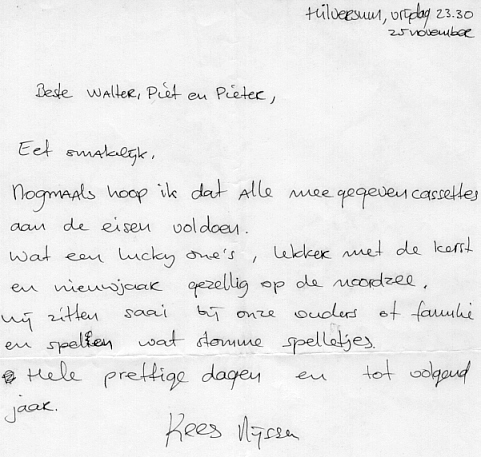 Hilversum, vrijdag 23.30
25 november
Beste Walter, Piet en Pieter,
Eet smakelijk.
Nogmaals hoop ik dat alle meegegeven cassettes
aan de eisen voldoen.
Wat een lucky one's, lekker met de kerst
en nieuwjaar gezellig op de noordzee.
Wij zitten saai bij onze ouders of familie
en spellen wat stomme spelletjes.
Hele prettige dagen en tot volgend
jaar.
Kees Nijssen